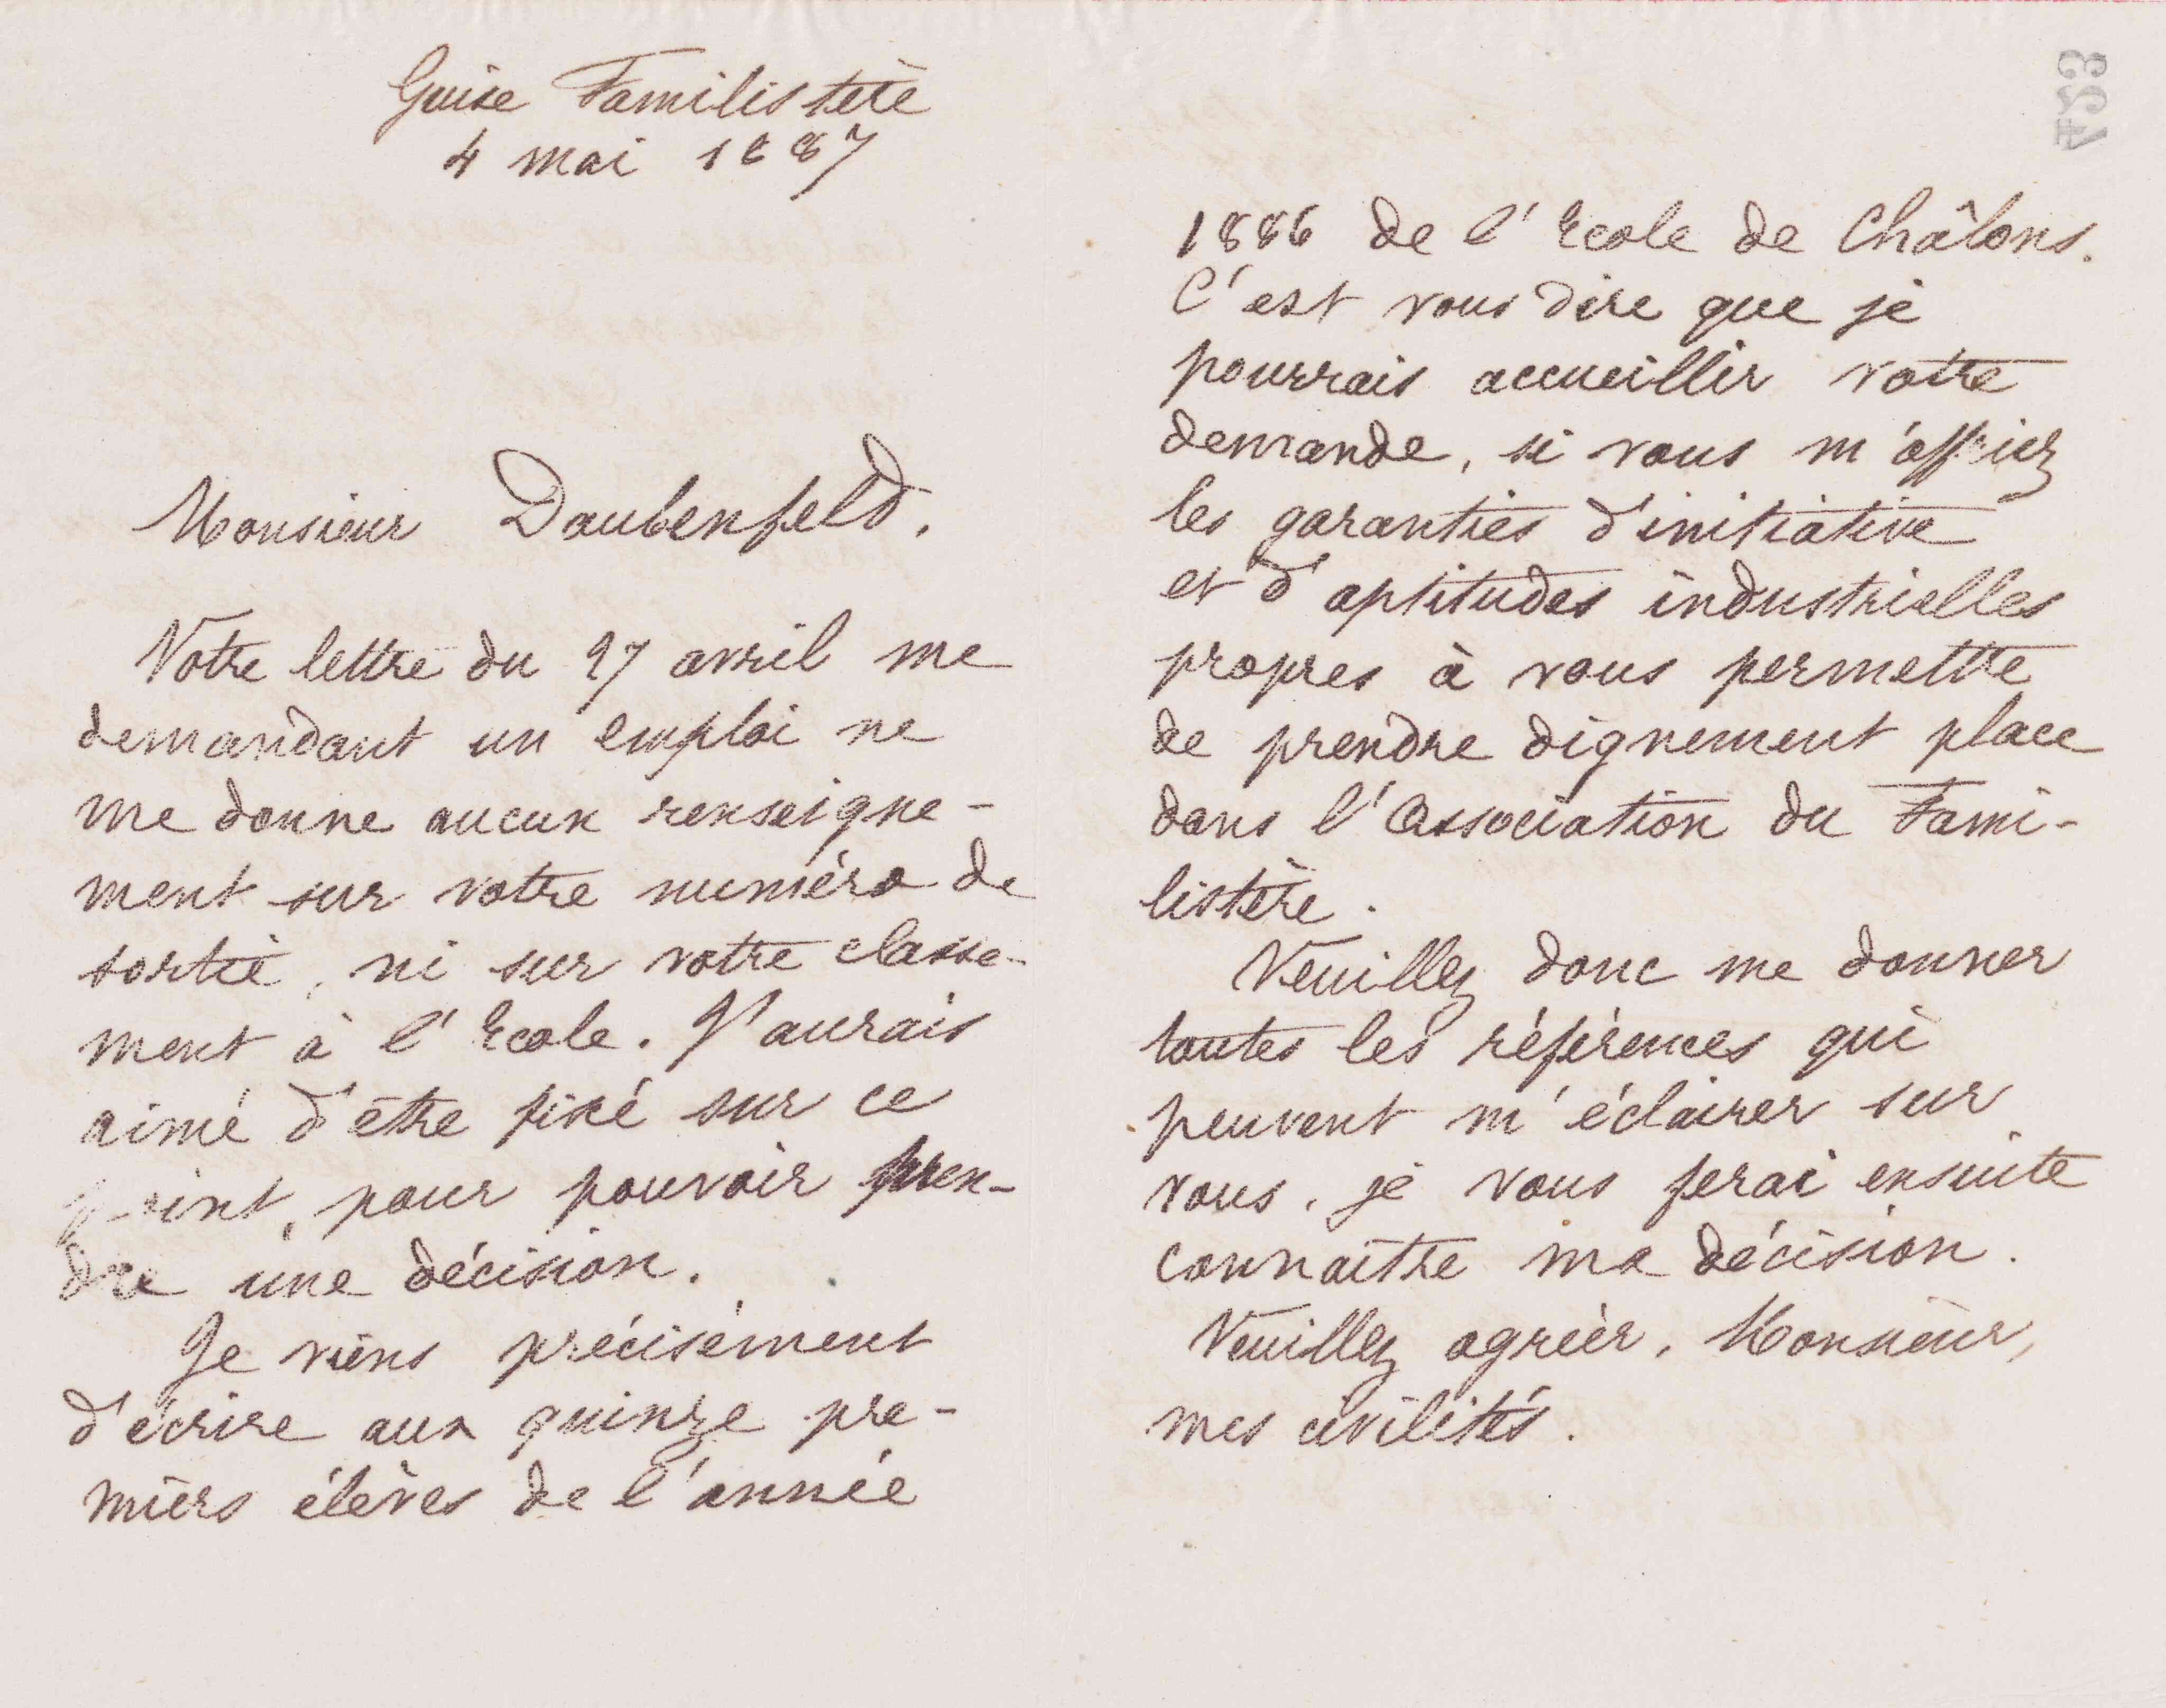 Guise Familistère
4 mai 1887
Monsieur Daubenfeld.
Votre lettre du 27 avril me
demandant un emploi ne
me donne aucun renseigne-
ment sur votre numéro de
sortie, ni sur votre classe-
ment à l'Ecole. J'aurais
aimé d'être fixé sur ce
point, pour pouvoir pren-
dre une décision.
Je viens précisément
d'écrire aux quinze pre-
miers élèves de l'année
1886 de l'Ecole de Châlons.
C'est vous dire que je
pourrais accueillir votre
demande, si vous m'offriez
les garanties d'initiative
et d'aptitudes industrielles
propres à vous permettre
de prendre dignement place
dans l'Association du Fami-
listère.
Veuillez donc me donner
toutes les références qui
peuvent m'éclairer sur
vous, je vous ferai ensuite
connaître ma décision.
Veuillez agréer, Monsieur,
mes civilités.